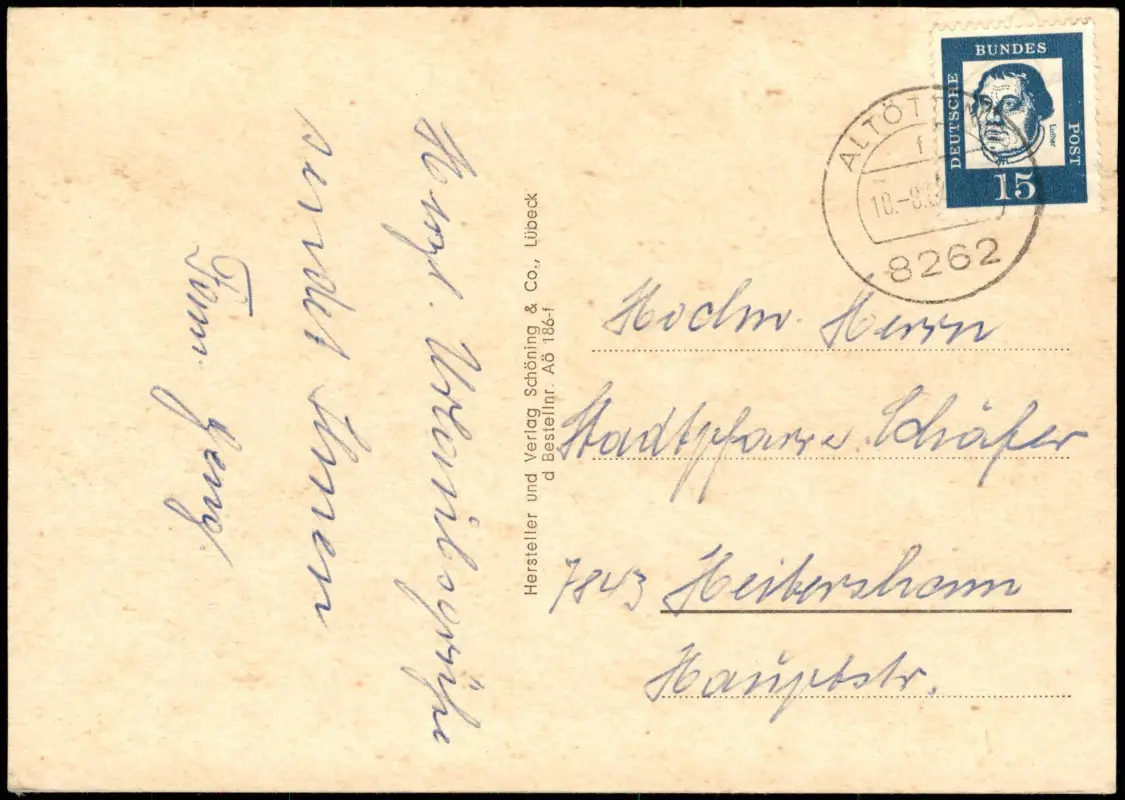 DEUTSCHE BUNDES POST
Luther
15
ALTÖTT
f
10.-8.6
8262
Herzl. Urlaubsgrüße
sendet Ihnen
Fam.
Hersteller und Verlag Schöning & Co., Lübeck
d Bestellnr. AÖ 186-f
Hochw. Herrn
Stadtpfarrer Schäfer
7843 Heitersheim
Hauptstr.